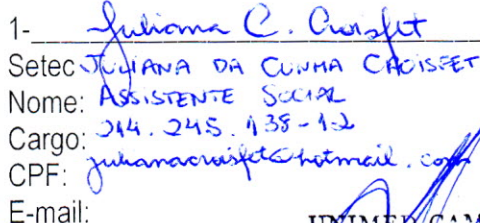 1- Juliana C. Croisfet
Setec JULIANA DA CUNHA CROISFET
Nome: ASSISTENTE SOCIAL
Cargo: 214.245.138-12
CPF: julianacroisfet@hotmail.com
E-mail:
UNIMED CAM